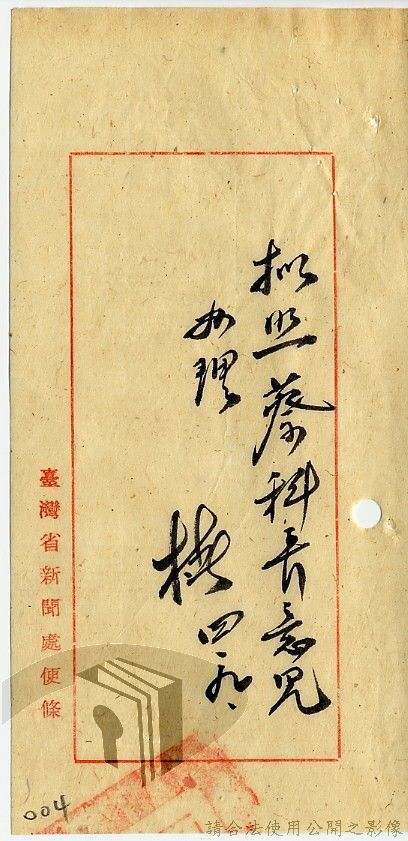 擬照蔡科長意見
办理
四、九、
臺灣省新聞處便條
004
請合法使用公開之影像